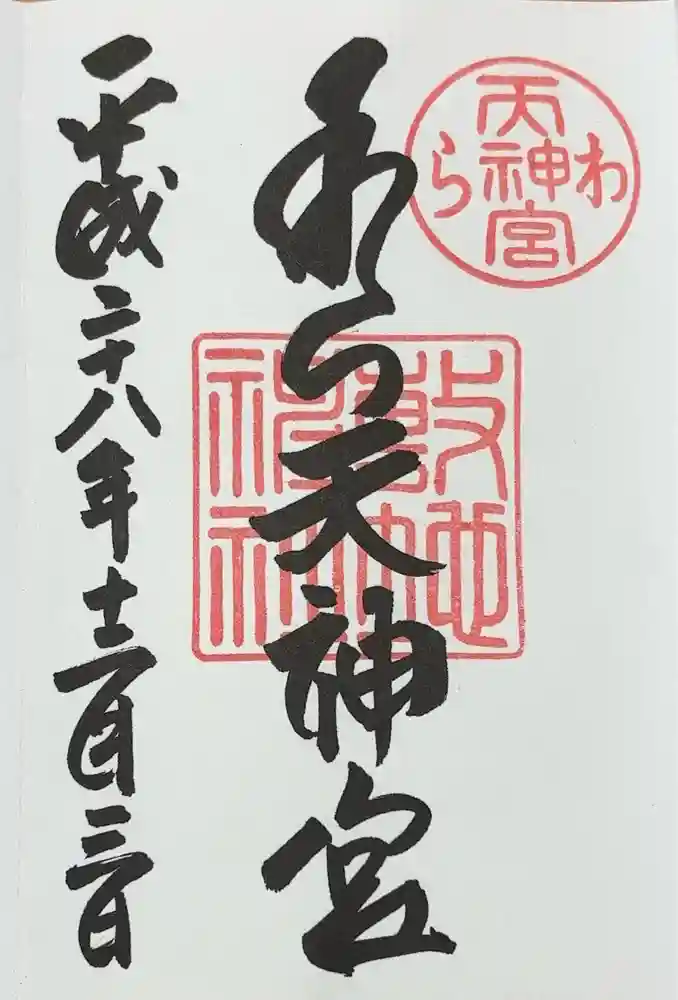 わら天神宮
わら天神宮
敷地神社
平成二十八年十二月三日